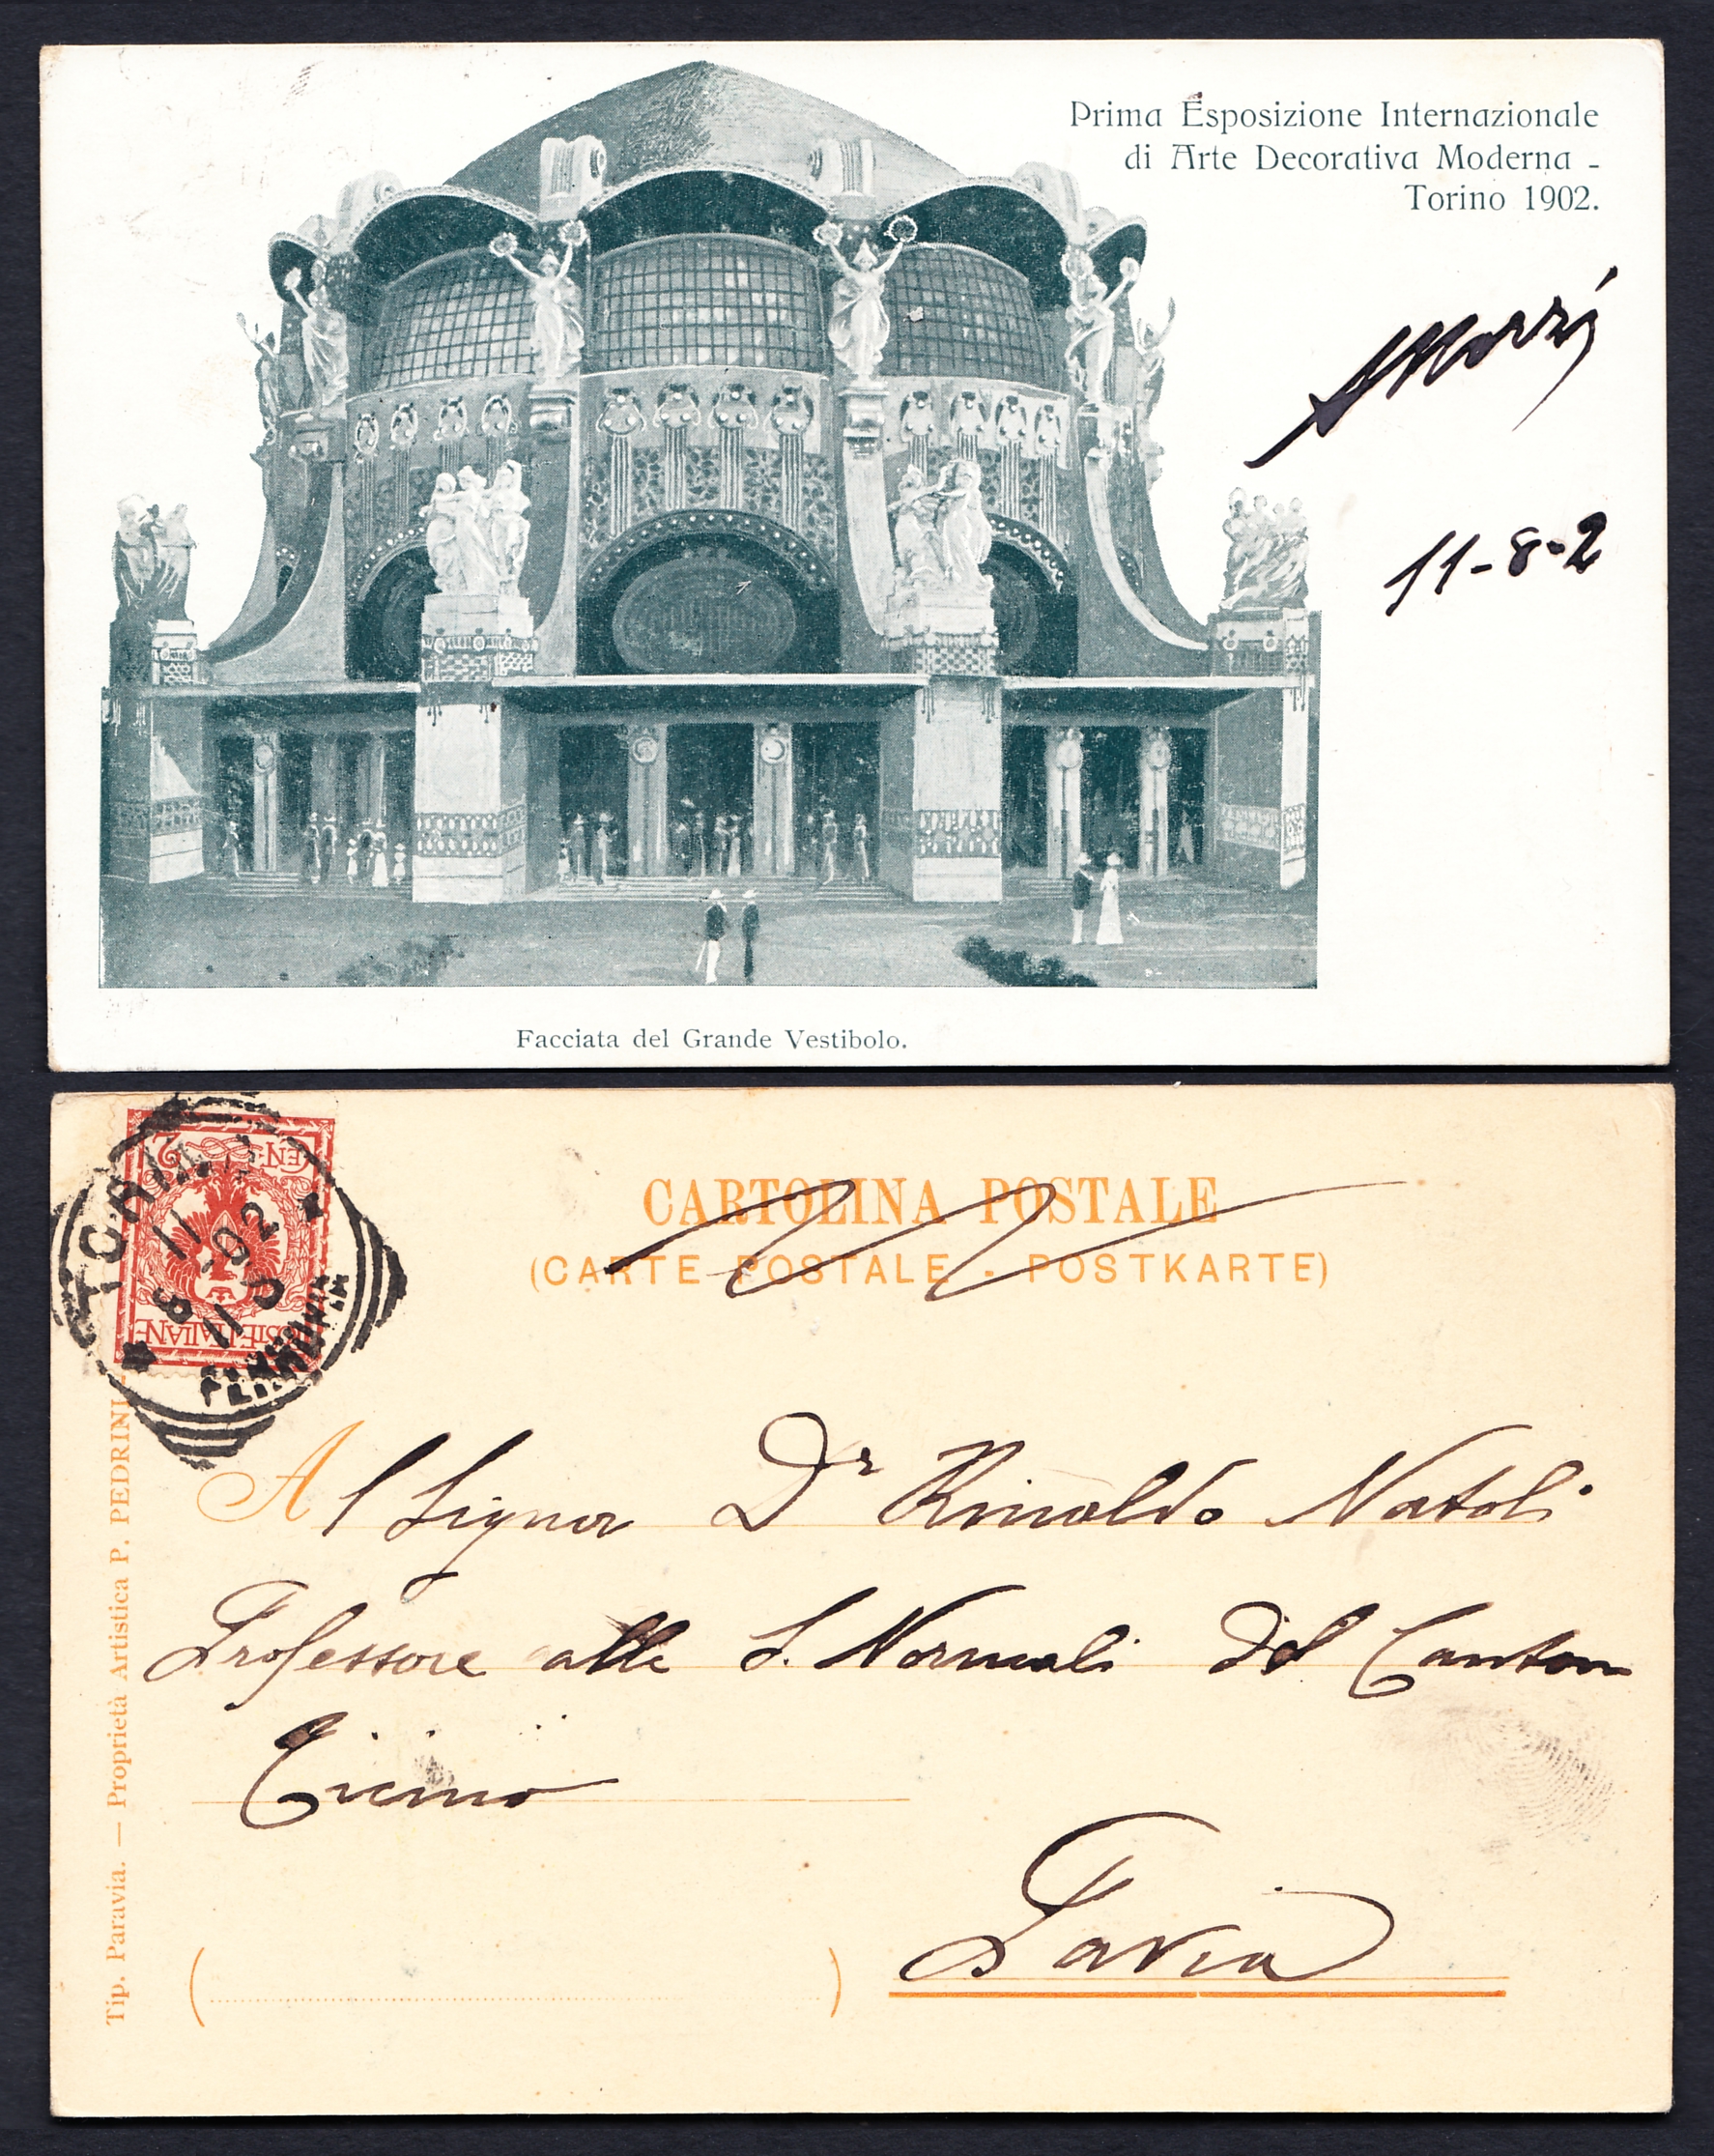 Prima Esposizione Internazionale
di Arte Decorativa Moderna -
Torino 1902.
11-8-2
Facciata del Grande Vestibolo.
CEN. 2
POSTE ITALIANE
TORINO
11
8 - 02
11 S
FERROVIA
CARTOLINA POSTALE
(CARTE POSTALE - POSTKARTE)
Al Signor Dr Rinaldo Natoli
Professore alle S. Normali del Canton
Ticino
Pavia
Tip. Paravia. — Proprietà Artistica P. PEDRINI